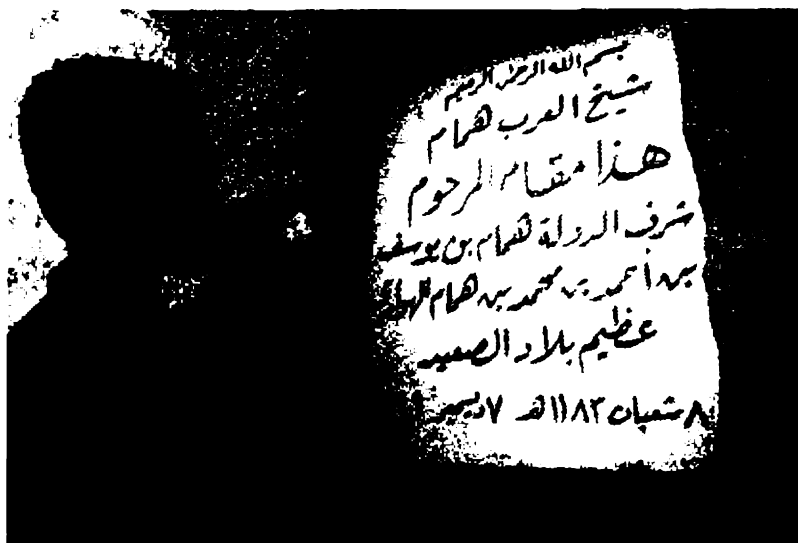 بسم الله الرحمن الرحيم
شيخ العرب همام
هذا مقام المرحوم
شرف الدولة همام بن يوسف
بن أحمد بن محمد بن همام
عظيم بلاد الصعيد
٨ شعبان ١١٨٣هـ ٧ ديسمبر